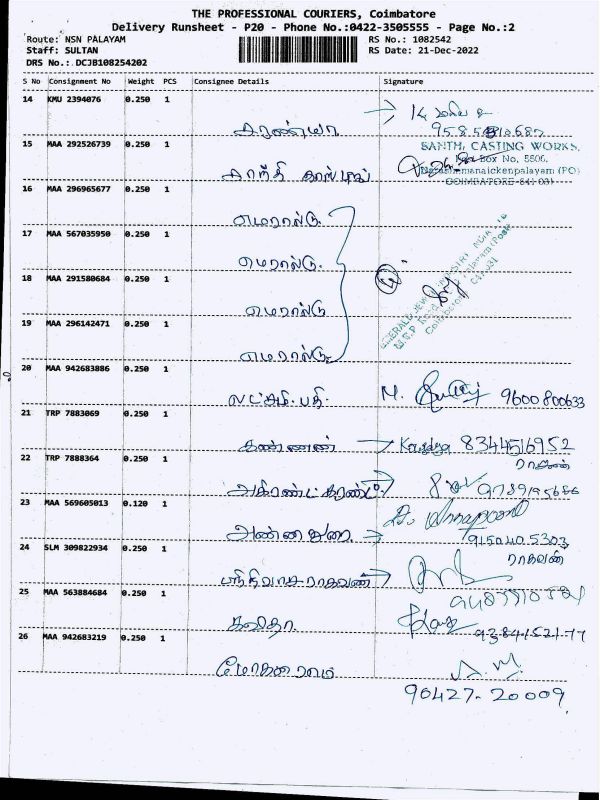 THE PROFESSIONAL COURIERS, Coimbatore
Delivery Runsheet - P20 - Phone No.:0422-3505555 - Page No.:2
Route: NSN PALAYAM RS No.: 1082542
Staff: SULTAN RS Date: 21-Dec-2022
DRS No.: DCJB108254202
S No Consignment No Weight PCS Consignee Details Signature
14 KMU 2394076 0.250 1
சரண்யா
15 MAA 292526739 0.250 1 SANTH, CASTING WORKS,
Box No, 5506,
சாந்தி காஸ்டிங் Narasimmanaickenpalayam (PO)
COIMBATORE-641 031
16 MAA 296965677 0.250 1
எமரால்டு
17 MAA 567035950 0.250 1
எமரால்டு
18 MAA 291580684 0.250 1
எமரால்டு
19 MAA 296142471 0.250 1
எமரால்டு
20 MAA 942683886 0.250 1
லட்சுமிபதி M. 9600800633
21 TRP 7883069 0.250 1
கண்ணன் 8344516952
22 TRP 7888364 0.250 1
23 MAA 569605013 0.120 1
9150405303
24 SLM 309822934 0.250 1 ராகவன்
ராகவன்
25 MAA 563884684 0.250 1
கவிதா 93841521-77
26 MAA 942683219 0.250 1
90427-20009